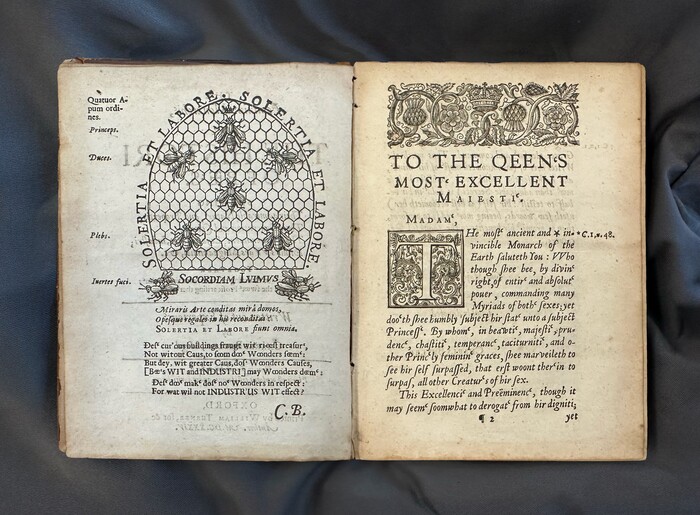 Quatuor A-
pum ordi-
nes.
Princeps.
Duces.
Plebs.
Inertes fuci.
SOLERTIA ET LABORE. SOLERTIA ET LABORE.
SOCORDIAM LVIMVS
Miraris Arte conditas mirâ domos,
Opesque regales in his reconditas?
SOLERTIA ET LABORE fiunt omnia.
Des‘ cur'ous buildings fraugt wit ric treasur‘,
Not witout Caus, to som dos‘ Wonders seem‘:
But dey, wit greater Caus, dos‘ Wonders Causes,
[Bee's WIT and INDUSTRI] may Wonders deem‘:
Des‘ dos‘ mak‘ dos‘ no‘ Wonders in respect:
For wat wil not INDUSTR'US WIT effect?
C.B.
TO THE QEEN‘S
MOST EXCELLENT
MAIESTI‘.
MADAM‘,
The most‘ ancient and * in-
*C.1.n.48.
vincible Monarch of the
Earth saluteth You: VVho
though shee bee, by divin‘
right, of entir‘ and absolut‘
power, commanding many
Myriads of both‘ sexes; yet
doo‘th shee humbly subject hir stat‘ unto a subject
Princess‘. By whom‘, in beauti‘, majesti‘, pru-
denc‘, chastiti‘, temperanc‘, taciturniti‘, and o-
ther Princ‘ly feminin‘ graces, shee marveileth to
see hir self surpassed, that erst woont‘ ther‘in to
surpas, all other Creatur‘s of hir sex.
This Excellenci‘ and Preëminenc‘, though it
may seem‘ soomwhat to derogat‘ from hir digniti;
¶ 2
yet